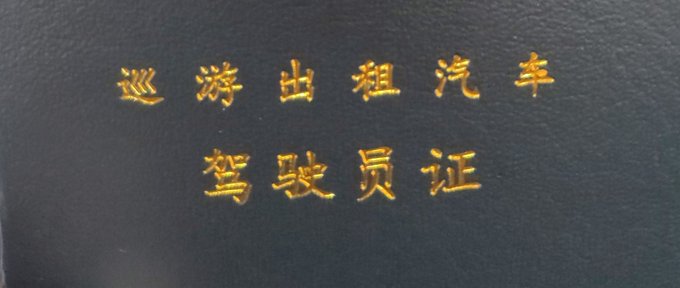 巡游出租汽车
驾驶员证